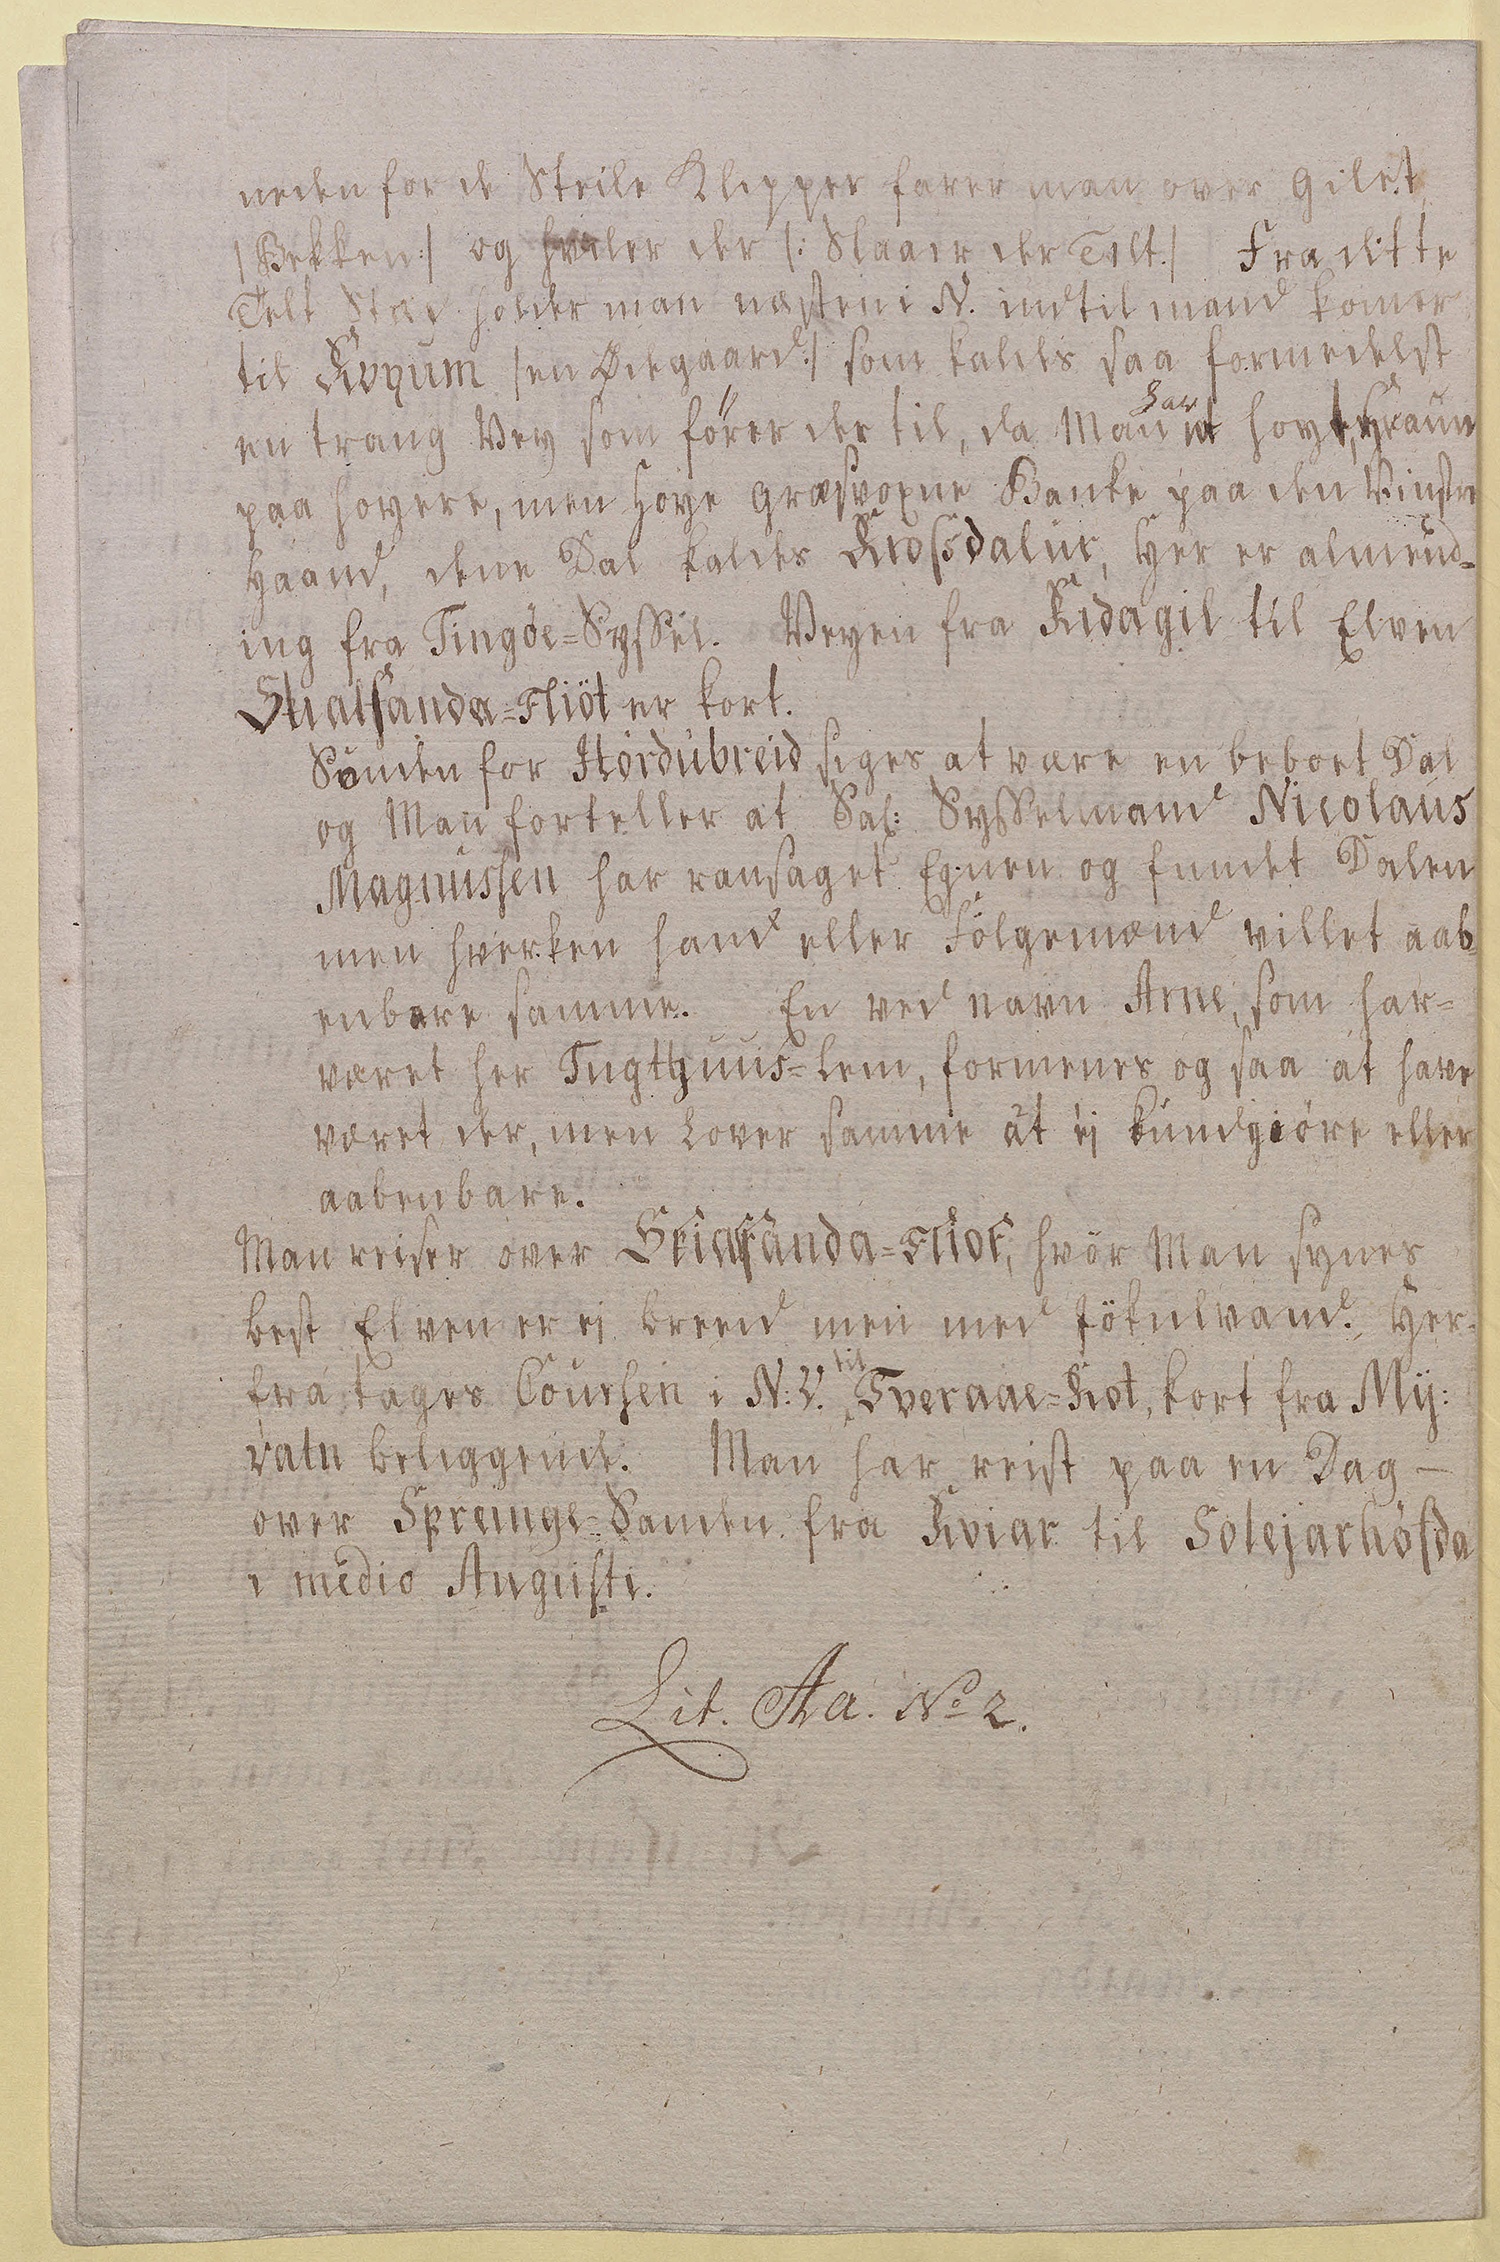 neden for de Steile Klipper farer man over Gilet
/Bekken:/ og hviler der /: Slaaer der Telt./ Fra dette
Telt Sted holder man næsten i N. indtil mand komer
til Kvyum /en Ödegaard:/ som kaldes saa formedelst
en trang Vey som förer der til, da Man har et hoyt Hraun
paa hoyere, men Hoye græsvoxne Banke paa den Vinstre
Haand, dene Dal kaldes Krossdalur, Her er almend-
ing fra Tingöe=Syssel. Veyen fra Kidagil til Elven
Skialfanda=Fliöt er kort.
Sönden for Herdubreid siges at være en beboet Dal
og Man forteller at Sal: Sysselmand Nicolaus
Magnussen har ransaget Egnen og fundet Dalen
men hverken hand eller Fölgemænd villet aab-
enbare samme. En ved navn Arne, som har=
været her Tugthuus=Lem, formenes og saa at have
været der, men Lover samme at ej kundgiöre eller
aabenbare.
Man reiser over Skialfanda=Fliot, hvör Man synes
best Elven er ej breed men med Jökulvand. Her-
fra tages Coursen i N: V. til Tveraae=Kot, kort fra My:
vatn beliggende. Man har reist paa en Dag —
over Sprenge=Sanden fra Kviar til Soleyarhöfda
i medio Augusti.
Lit. Aa. No 2.